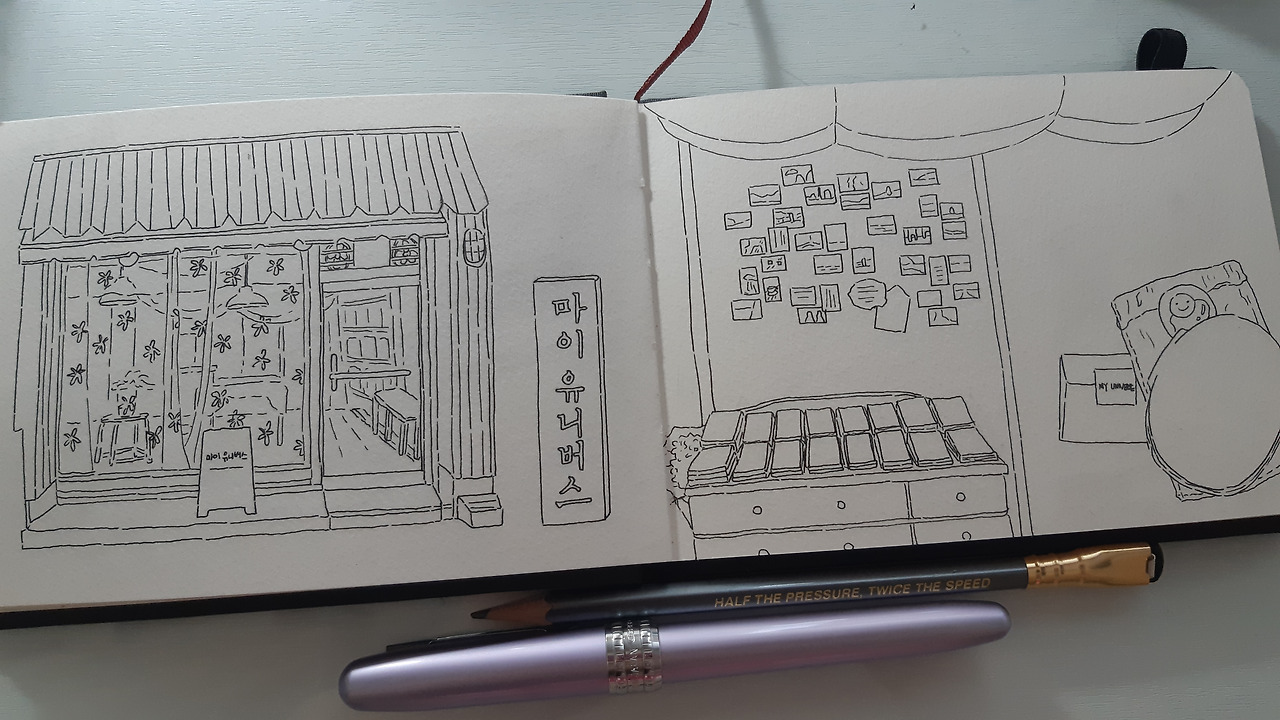 마이유니버스
MY UNIVERSE
HALF THE PRESSURE, TWICE THE SPEED